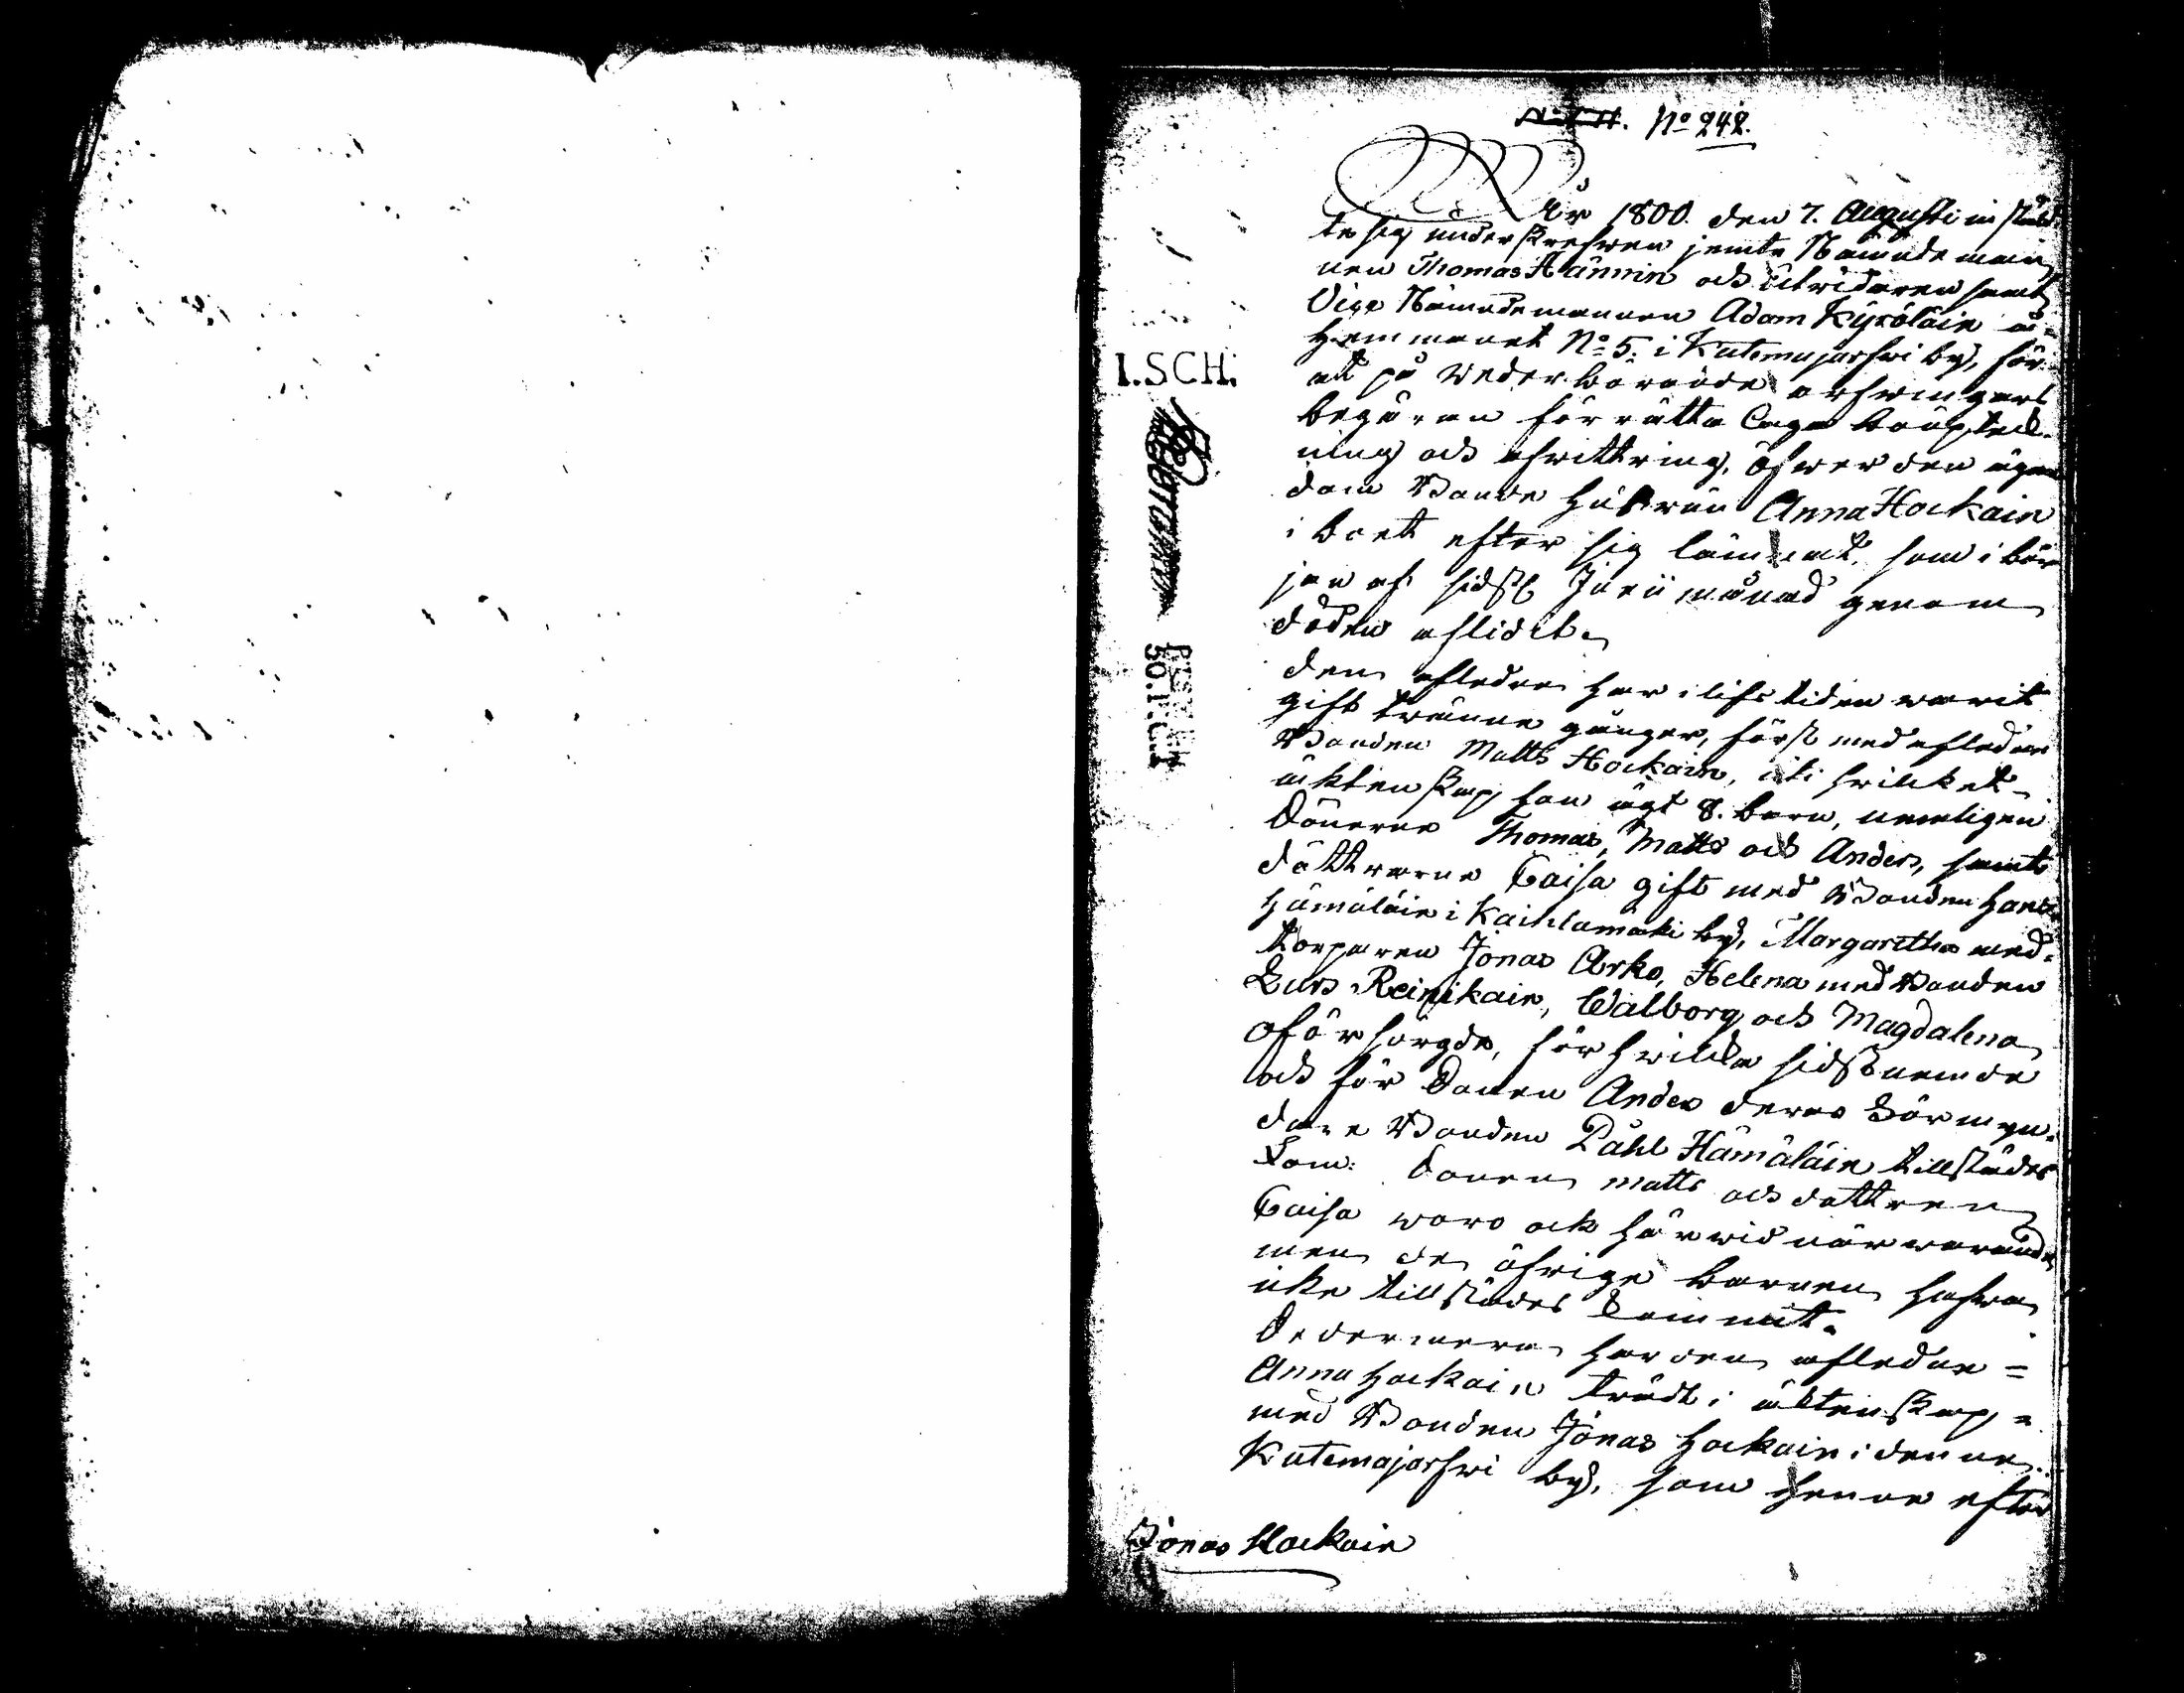 No 242.
År 1800. den 7. Augusti instäld
te sig underskrefwen jemte Nämndeman
nen Thomas Hännin och utridaren samt
Vice Nämndemannen Adam Kyröläin å
Hemmanet No 5. i Kutemajärfwi by, för
att på wederbörande arfwingars
begäran förrätta Laga boupteck-
ning och afwittring, öfwer den egen
dom Bonde Hustrun Anna Hockain
i boet efter sig lämnat, som i bör
jan af sidstl Junii månad genom
döden aflidit.
Den afledne har i lifstiden warit
gift twänne gånger, först med afledne
Bonden Matts Hockain, uti hwilcket
äktenskap hon ägt 8. barn, nemligen
Sönerne Thomas, Matts och Anders, samt
döttrarne Caisa gift med Bonden Hans
Hämäläin i Kaihlamäki by, Margaretha med
torparen Jonas Arko, Helena med Bonden
Lars Reinikain, Walborg och Magdalena
oförsörgde, för hwilcka sidstnemde
och för Sonen Anders deras Förmyn-
dare Bonden Påhl Hämäläin tillstädes
kom. Sonen Matts och dottren
Caisa woro ock härwid närwarande
men de öfrige barnen hafwa
icke tillstädes kommit.
Dedermera har den afledne =
Anna Hockain trädt i äktenskap =
med Bonden Jonas Hockain i denne
Kutemajärfwi by, som henne efter
Jonas Hockain
I.SCH.
50.I.C.1